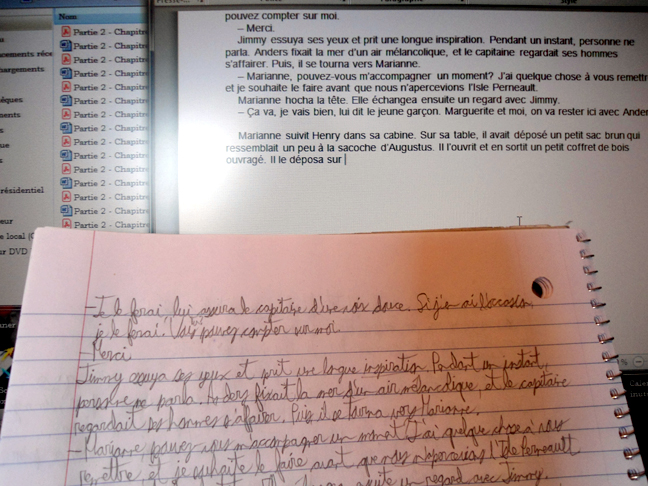 Nom
Partie 2 - Chapitr
Partie 2 - Chapitre
Partie 2 - Chapitre
Partie 2 - Chapitre
Partie 2 - Chapitre
Partie 2 - Chapitre
Partie 2 - Chapitre
Partie 2 - Chapitre
Partie 2 - Chapitre
Partie 2 - Chapitre
Partie 2 - Chapitre
Partie 2 - Chapitre
Partie 2 - Chapitre
Partie 2 - Chapitre
Partie 2 - Chapitre
résidentiel
e local (C
ur DVD
pouvez compter sur moi.
– Merci.
Jimmy essuya ses yeux et prit une longue inspiration. Pendant un instant, personne ne
parla. Anders fixait la mer d'un air mélancolique, et le capitaine regardait ses hommes
s'affairer. Puis, il se tourna vers Marianne.
– Marianne, pouvez-vous m'accompagner un moment? J'ai quelque chose à vous remettr
et je souhaite le faire avant que nous n'apercevions l'Isle Perneault.
Marianne hocha la tête. Elle échangea ensuite un regard avec Jimmy.
– Ça va, je vais bien, lui dit le jeune garçon. Marguerite et moi, on va rester ici avec Ander
Marianne suivit Henry dans sa cabine. Sur sa table, il avait déposé un petit sac brun qui
ressemblait un peu à la sacoche d'Augustus. Il l'ouvrit et en sortit un petit coffret de bois
ouvragé. Il le déposa sur
– Je le ferai, lui assura le capitaine d'une voix douce. Si j'en ai l'occasion,
je le ferai. Vous pouvez compter sur moi.
– Merci.
Jimmy essuya ses yeux et prit une longue inspiration. Pendant un instant,
personne ne parla. Anders fixait la mer d'un air mélancolique, et le capitaine
regardait ses hommes s'affairer. Puis il se tourna vers Marianne.
– Marianne pouvez-vous m'accompagner un moment? J'ai quelque chose à vous
remettre, et je souhaite le faire avant que nous n'apercevions l'Isle Perneault
ensuite un regard avec Jimmy.